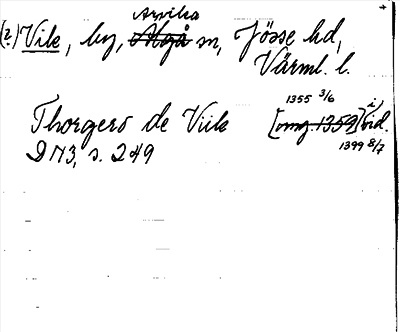 Arvika
(?) Vik, by, Älgå sn, Jösse hd,
Värml. l.
1355 3/6
Thorgers de Viik [omg. 1359] i vid.
1399 8/7
D N 3, s. 249